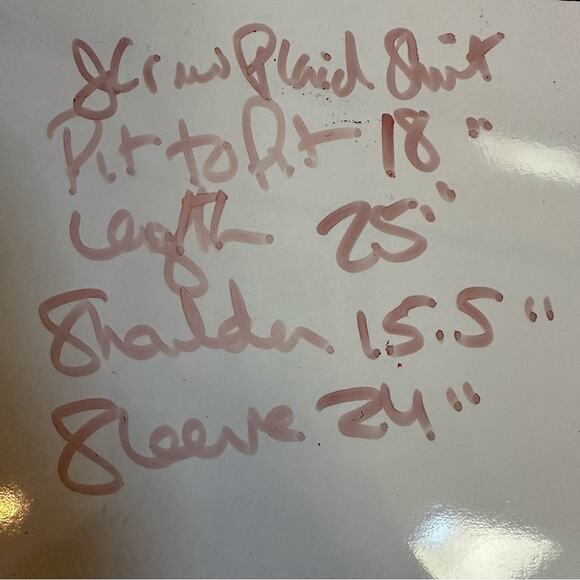 JCrew Plaid Shirt
Pit to Pit 18"
Length 25"
Shoulder 15.5"
Sleeve 24"